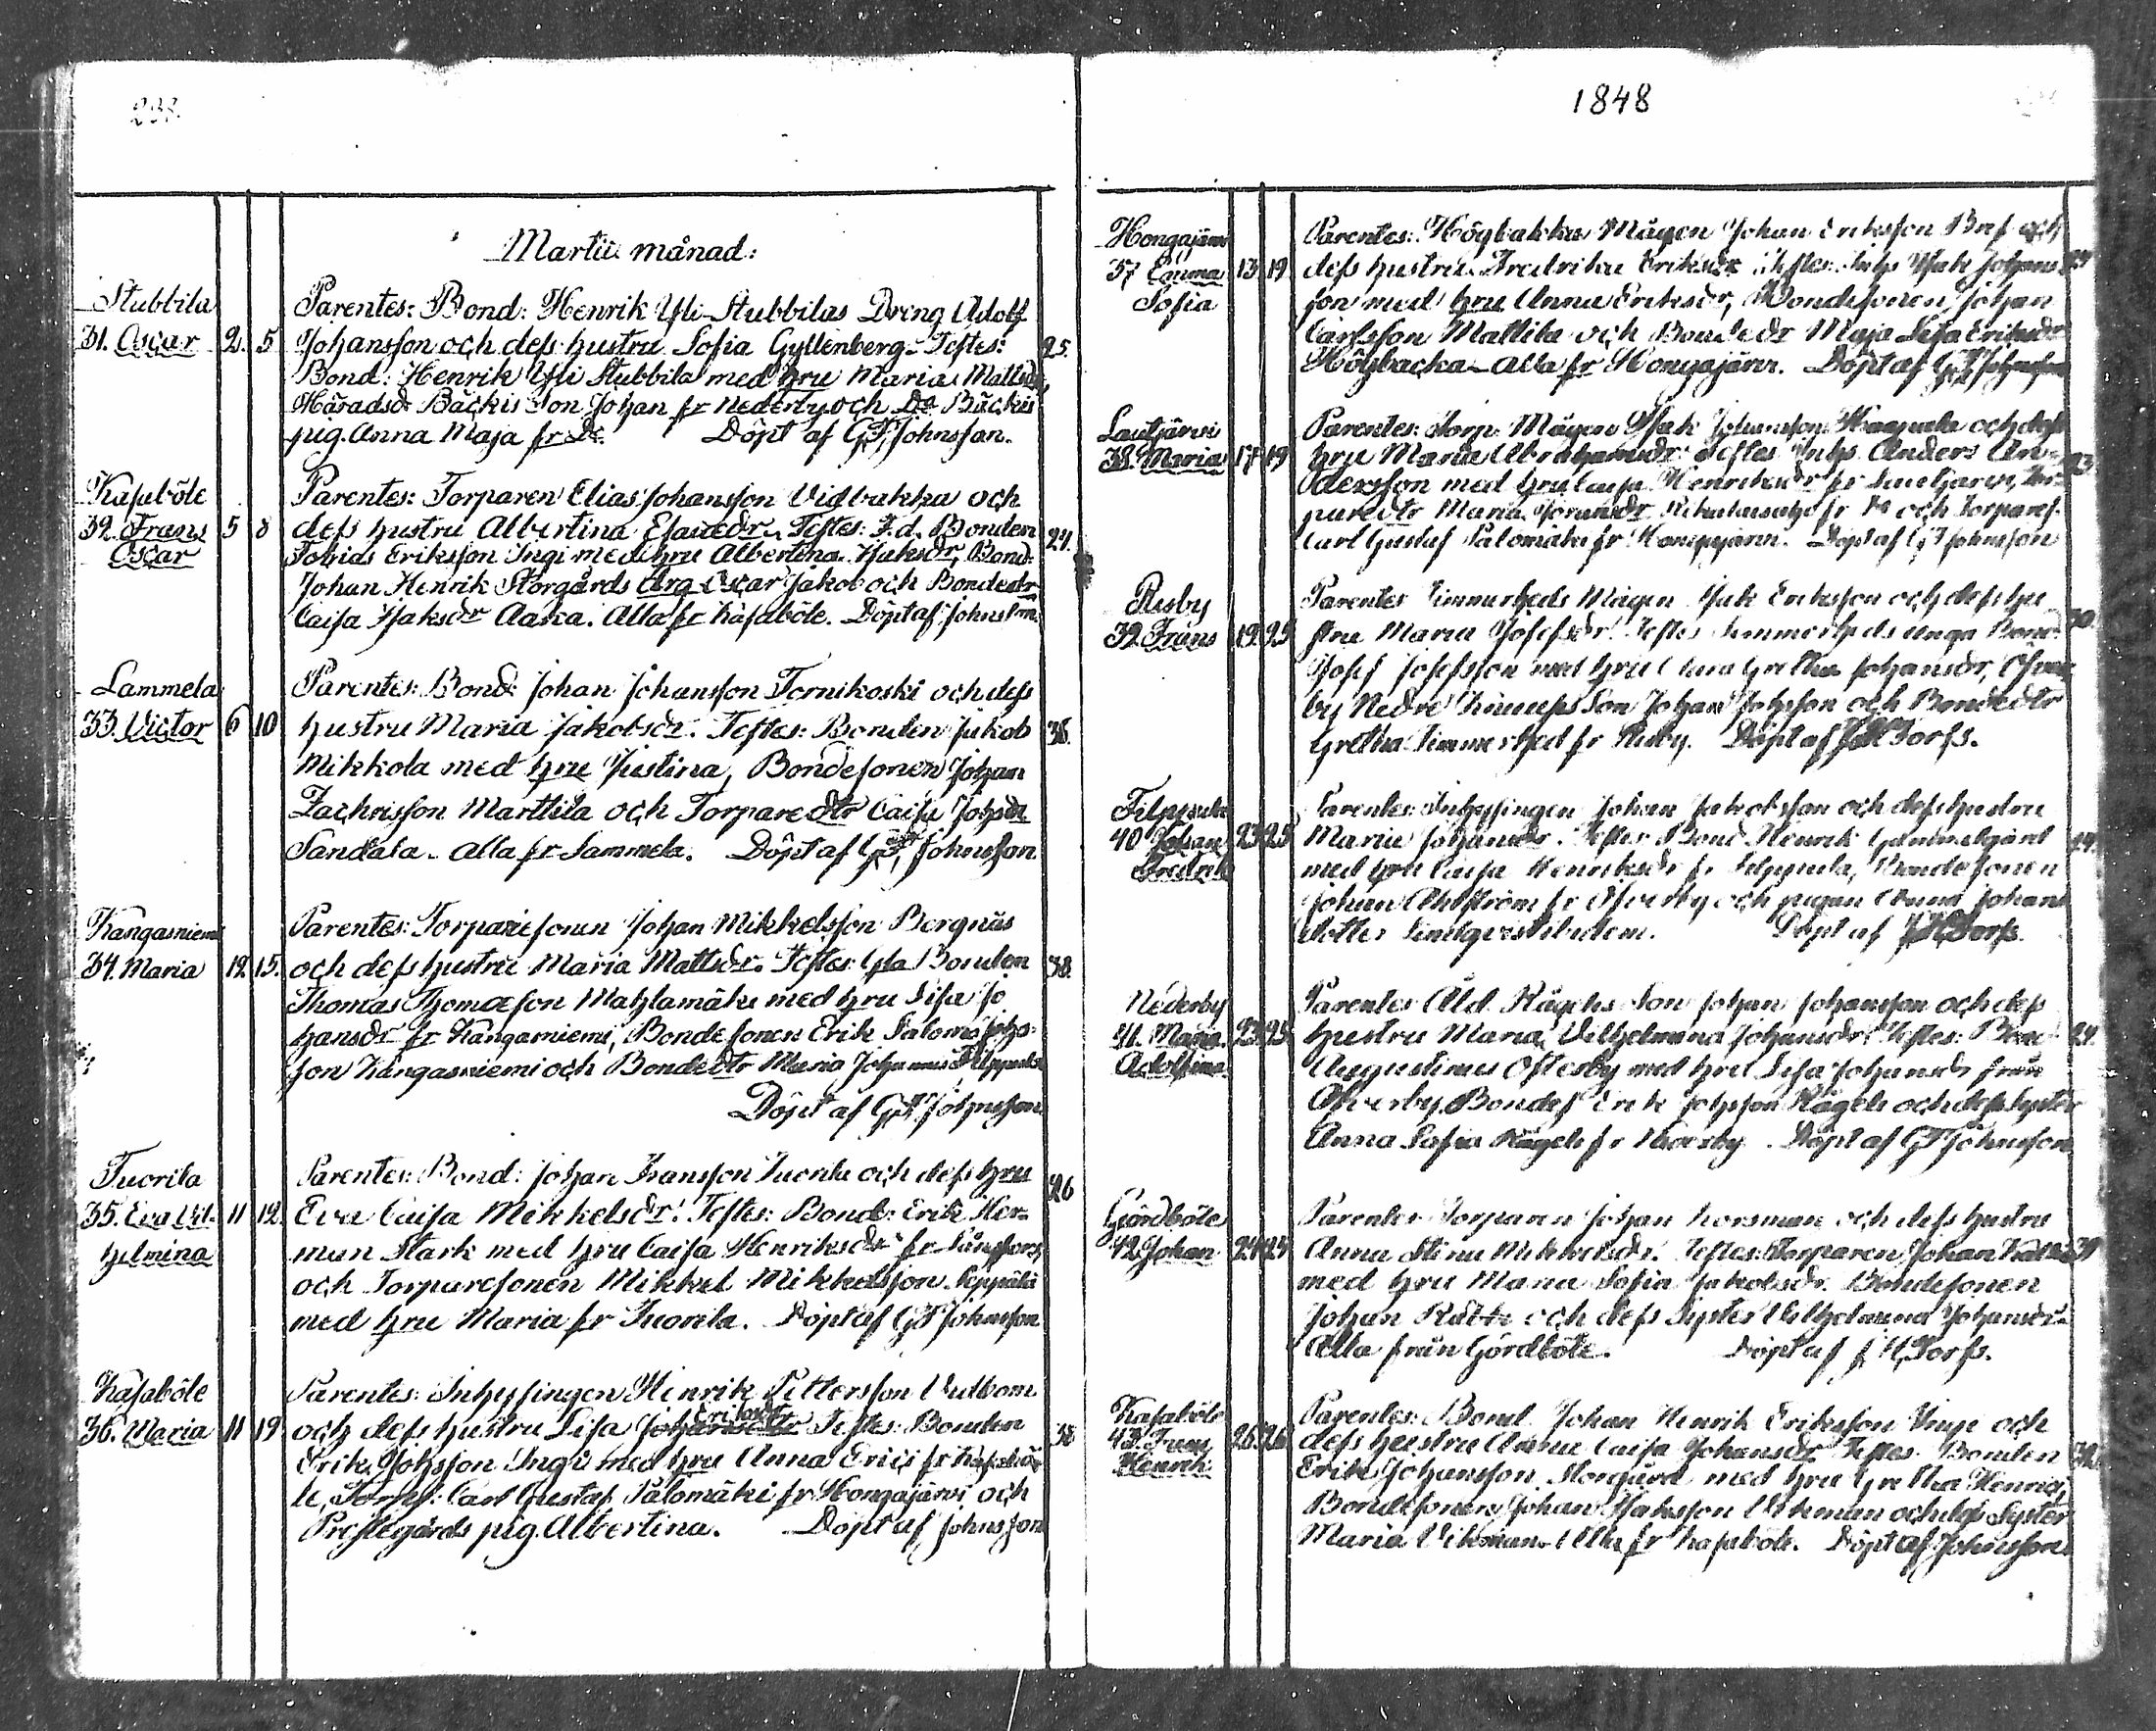 1848
Martii månad:
Stubbila
31. Oscar 2. 5
Parentes: Bond: Henrik Yli Stubbilas Dreng Adolf
Johansson och dess hustru Sofia Gyllenberg. Testes: 25.
Bond: Henrik Yli Stubbila med hru Maria Mattsdr,
Häradsd. Bäckis Son Johan fr Nederby och Do Bäckis
pig. Anna Maja fr Do. Döpt af GF Johnsson.
Kasaböle
32. Frans 5 8
Oscar
Parentes: Torparen Elias Johansson Vidbakka och
dess hustru Albertina Esaiedr. Testes: F.d. Bonden 24.
Tobias Eriksson Ingi med hru Albertina Isaksdr, Bond.
Johan Henrik Storgårds Arg Oscar Jakob och Bondedr
Caisa Isaksdr Aaka. Alla fr Kasaböle. Döpt af Johnsson
Lammela
33. Victor 6 10
Parentes: Bond: Johan Johansson Tornikoski och dess
hustru Maria Jakobsdr. Testes: Bonden Jakob 38.
Mikkola med hru Justina, Bondesonen Johan
Zachrisson Marttila och Torparedtr Caisa Johsdr
Sandala. alla fr Lammela. Döpt af GF Johnsson
Kangasniemi
34. Maria 12. 15.
Parentes: Torparesonen Johan Mikkelsson Bergnäs
och dess hustru Maria Mattsdr. Testes: Gla Bonden 38.
Thomas Thomasson Mahlamäki med hru Lisa Jo
hansdr fr Kangasniemi, Bondesonen Erik Salomo Johs-
son Kangasniemi och Bondedtr Maria Johannis Filppula
Döpt af GF Johnsson
Tuorila
35. Eva Vil- 11 12.
helmina
Parentes: Bond: Johan Fransson Tuorila och dess hru 26
Eva Caisa Mikkelsdr. Testes: Bond: Erik Her-
man Stark med hru Caisa Henriksdr fr
och Torparesonen Mikkel Mikkelsson Leppäki
med hru Maria fr Tuorila. Döpt af GF Johnsson
Kasaböle
36. Maria 11 19
Parentes: Inhysingen Henrik Pettersson Vidbom
och dess hustru Lisa Johansdtr Eriksdr Testes: Bonden 38
Erik Johsson Ingi med hru Anna Erics fr Kasabö
le, Torpfs. Carl Gustaf Palomäki fr Hongajärvi och
Prestegårds pig. Albertina. Döpt af Johnsson
Hongajärvi
37 Emma 13 19
Sofia
Parentes: Högbakkas Mågen Johan Eriksson Bref och
dess hustru Fredrika Eriksdr. Testes: Inhs Isak Johans
son med hru Anna Eriksdr, Bondesonen Johan
Carlsson Mattila och Bondedr Maja Lisa Eriksdr
Högbacka. Alla fr Hongajärvi. Döpt af GF Johnsson
Lautjärvi
38. Maria 17 19
Parentes: Torp. Mågen Isak Johansson och dess
hru Maria Abrahamsdr. Testes: Inhs. Anders An-
dersson med hru Caisa Henriksdr fr Lautjärvi, Tor-
paredtr Maria fr Do och Torparef.
Carl Gustaf Palomäki fr Hongajärvi. Döpt af GF Johnsson
Riisby
39 Frans 19 25
Parentes Timmerheds Mågen Isak Eriksson och dess hu
stru Maria Josefsdr. Testes Timmerheds unga Bond
Josef Josefsson med hru Anna Gretha Johansdr, Öfver
by Nedre Knuups Son Johan Johsson och Bondedtr
Gretha Timmerhed fr Riisby. Döpt af J H Forss.
Filppula
40 Johan 23 25
Fredrik
Parentes: Inhysingen Johan Jakobsson och dess hustru
Maria Johansdr. Testes Bond Henrik Gammelgård 24.
med hru Caisa Henriksdr fr Filppula, Bondesonen
Johan Ahlström fr Öfverby och pigan Anna Johans
dotter Lindqvist ibidem. Döpt af J H Forss.
Nederby
41. Maria 23 25
Adolfina
Parentes Åld. Rågels Son Johan Johansson och dess
hustru Maria Vilhelmina Johansdr. Testes: Bond 24.
Augustinus Österby med hru Lisa Johansdr från
Öfverby, Bondes Erik Johsson Rågels och dess syster
Anna Sofia Rågels fr Döpt af GF Johnsson
Gårdböle
42 Johan 24 25
Parentes Torparen Johan Korsman och dess hustru
Anna Stina Mikkelsdr. Testes: Torparen Johan
med hru Maria Sofia Jakobsdr. Bondesonen
Johan och dess syster Vilhelmina Johansdr.
Alla från Gårdböle. Döpt af J H Forss.
Kasaböle
43. Frans 25 26
Henrik
Parentes: Bond. Johan Henrik Eriksson Ingi och
dess hustru Anna Caisa Johansdr Testes: Bonden
Erik Johansson Storgård med hru Gretha Henrics,
Bondesonen Johan Isaksson Vikman och dess Syster
Maria Vikman. Alla fr Kasaböle. Döpt af Johnsson